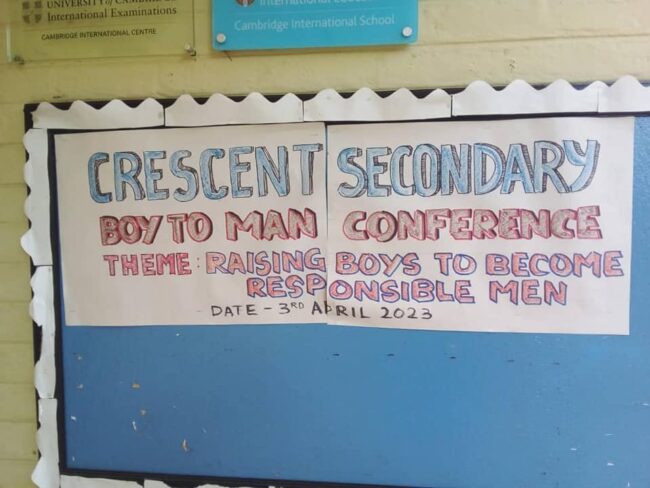 UNIVERSITY of CAMBRIDGE
International Examinations
CAMBRIDGE INTERNATIONAL CENTRE
Cambridge International School
CRESCENT SECONDARY
BOY TO MAN CONFERENCE
THEME: RAISING BOYS TO BECOME
RESPONSIBLE MEN
DATE - 3RD APRIL 2023